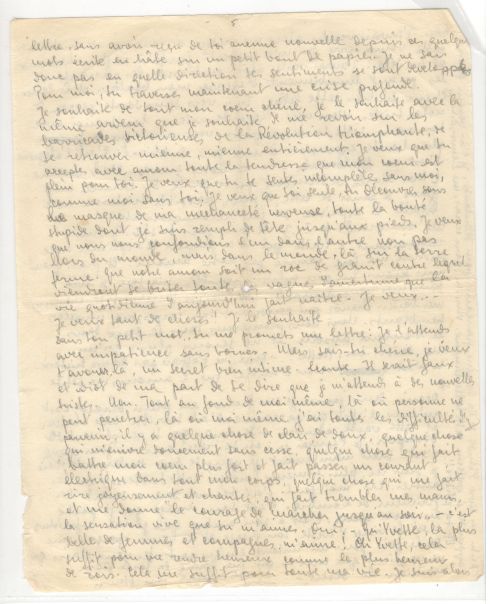 - 8
lettre, sans avoir reçu de toi aucune nouvelle depuis ces quelques
mots écrits en hâte sur un petit bout de papier. Je ne sais
donc pas en quelle direction tes sentiments se sont développés
Pour moi, tu traverses maintenant une crise profonde.
Je souhaite de tout mon coeur chérie, je le souhaite avec la
même ardeur que je souhaite de me revoir sur les
barricades victorieuses de la Révolution triomphante, de
te retrouver mienne, mienne entièrement. Je veux que tu
acceptes avec amour toute la tendresse que mon coeur est
plein pour toi. Je veux que tu te sentes incomplète sans moi,
comme moi sans toi. Je veux que toi seule, tu découvres sous
le masque de ma méchanceté nerveuse, toute la bonté
stupide dont je suis rempli de tête jusqu'aux pieds. Je veux
que nous nous confondions l'un dans l'autre non pas
hors du monde, mais dans le monde, là sur la terre
ferme. Que notre amour soit un roc de granit contre lequel
viendront se briser toutes les vagues d'amertume que la
vie quotidienne d'aujourd'hui fait naître. Je veux...
Je veux tant de choses! Je le souhaite
Dans ton petit mot, tu me promets une lettre. Je l'attends
avec impatience sans bornes. Mais, sais-tu chérie, je veux
t'avouer là, un secret bien intime. Ecoute. Il serait faux
et idiot de ma part de te dire que je m'attends à des nouvelles
tristes. Non. Tout au fond de moi même, là où personne ne
peut pénétrer, là où moi même j'ai toutes les difficultés
il y a quelque chose de clair de doux, quelque chose
qui m'enivre doucement sans cesse, quelque chose qui fait
battre mon coeur plus fort et fait passer un courant
électrique dans tout mon corps, quelque chose qui me fait
rire joyeusement et chanter, qui fait trembler mes mains,
et me donne le courage de marcher jusqu'au soir - c'est
la sensation vive que tu m'aimes. Oui! Qu'Yvette, la plus
belle de femmes et compagnes, m'aime! Oh Yvette, cela
suffit pour me rendre heureux comme le plus heureux
de rois. Cela me suffit pour toute ma vie. Je